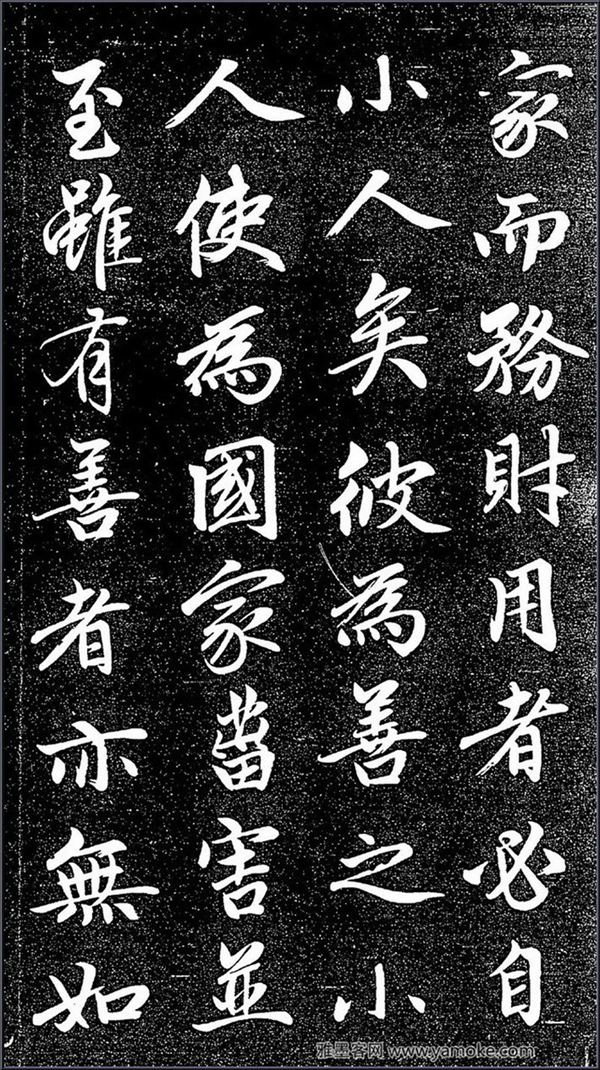 家而務財用者必自
小人矣彼為善之小
人使為國家菑害並
至雖有善者亦無如
雅墨客网 www.yamoke.com